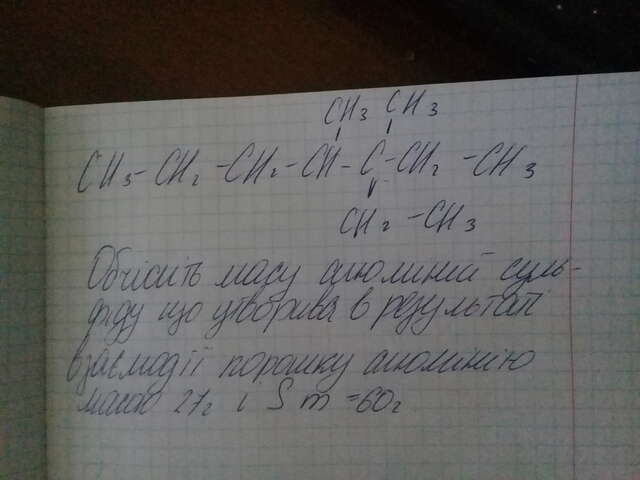 CH₃ CH₃
CH₃ – CH₂ – CH₂ – CH – C – CH₂ – CH₃
CH₂ – CH₃
Обчисліть масу алюміній суль-
фіду що утворивв в результаті
взаємодії порошку алюмінію
масою 27г і S m = 60г